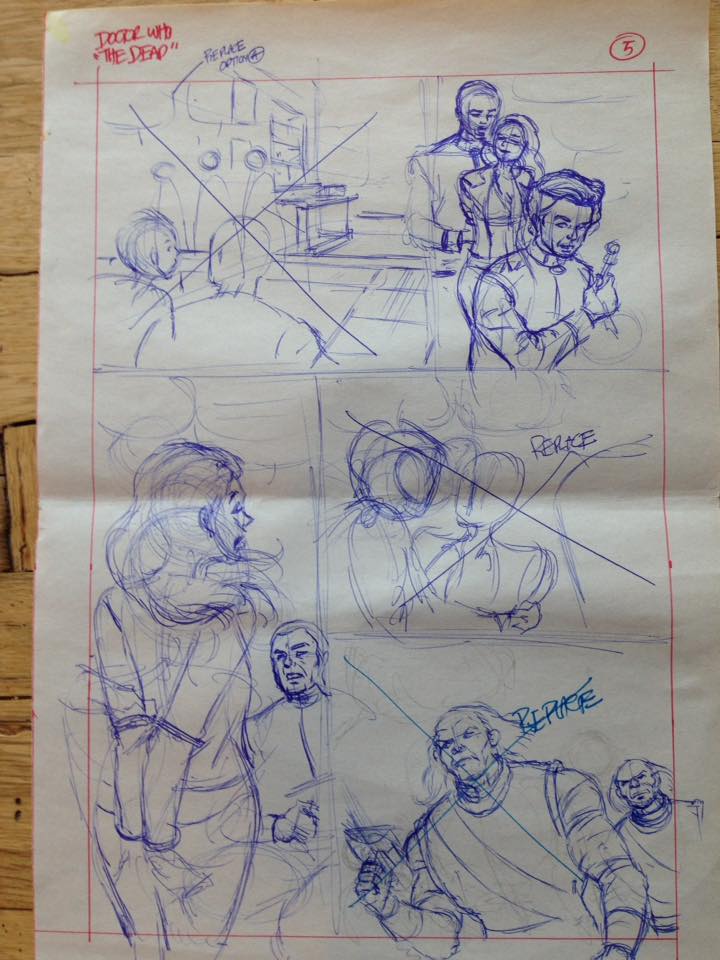 DOCTOR WHO
"THE DEAD"
REPLACE
OPTION A
5
REPLACE
REPLACE